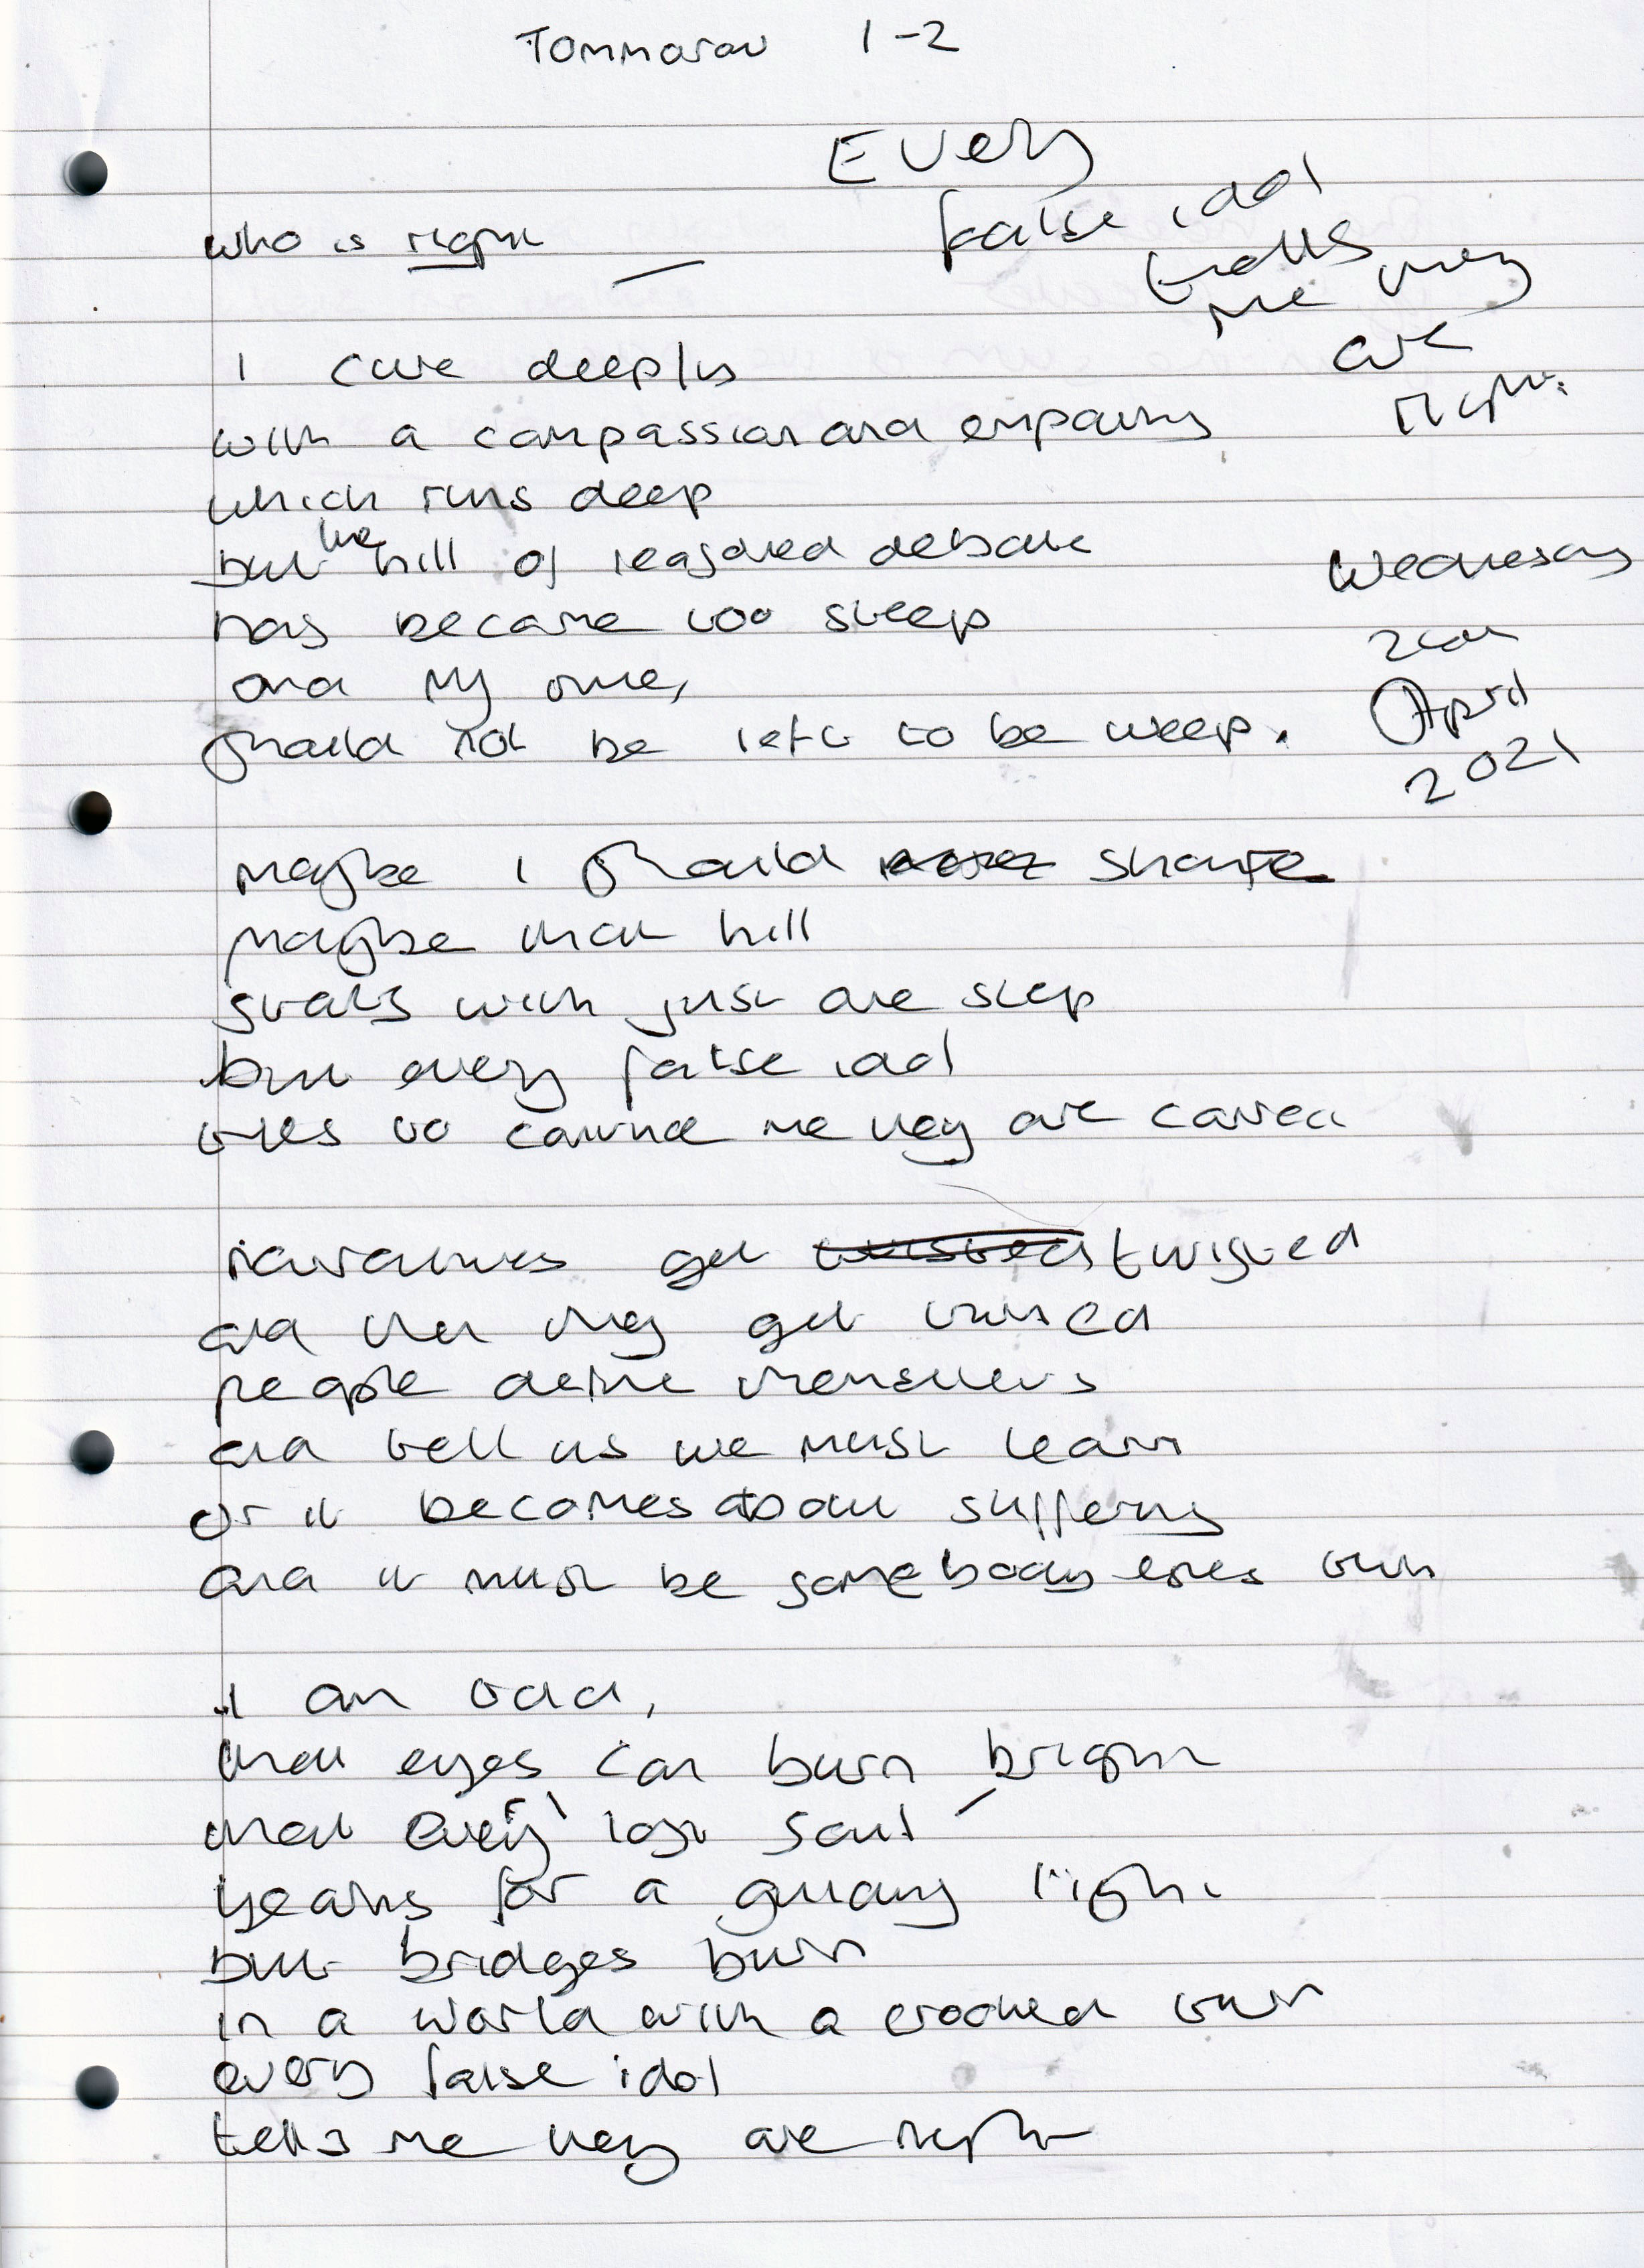 Tommorow 1-2
Every
false idol
tells
me they
are
right.
who is right
I care deeply
with a compassion and empathy
which runs deep
but the hill of reasoned debate
has become too steep
and my time,
should not be left to be weep.
Wednesday
April
2021
maybe I should share
maybe that hill
starts with just one step
but every false idol
tries to convince me they are correct
narratives get twisted
and then they get turned
people define themselves
and tell us we must learn
or it becomes about suffering
and it must be somebody elses turn
I am told,
that eyes can burn bright
that every lost soul
yearns for a guiding light
but bridges burn
in a world with a crooked turn
every false idol
tells me they are right